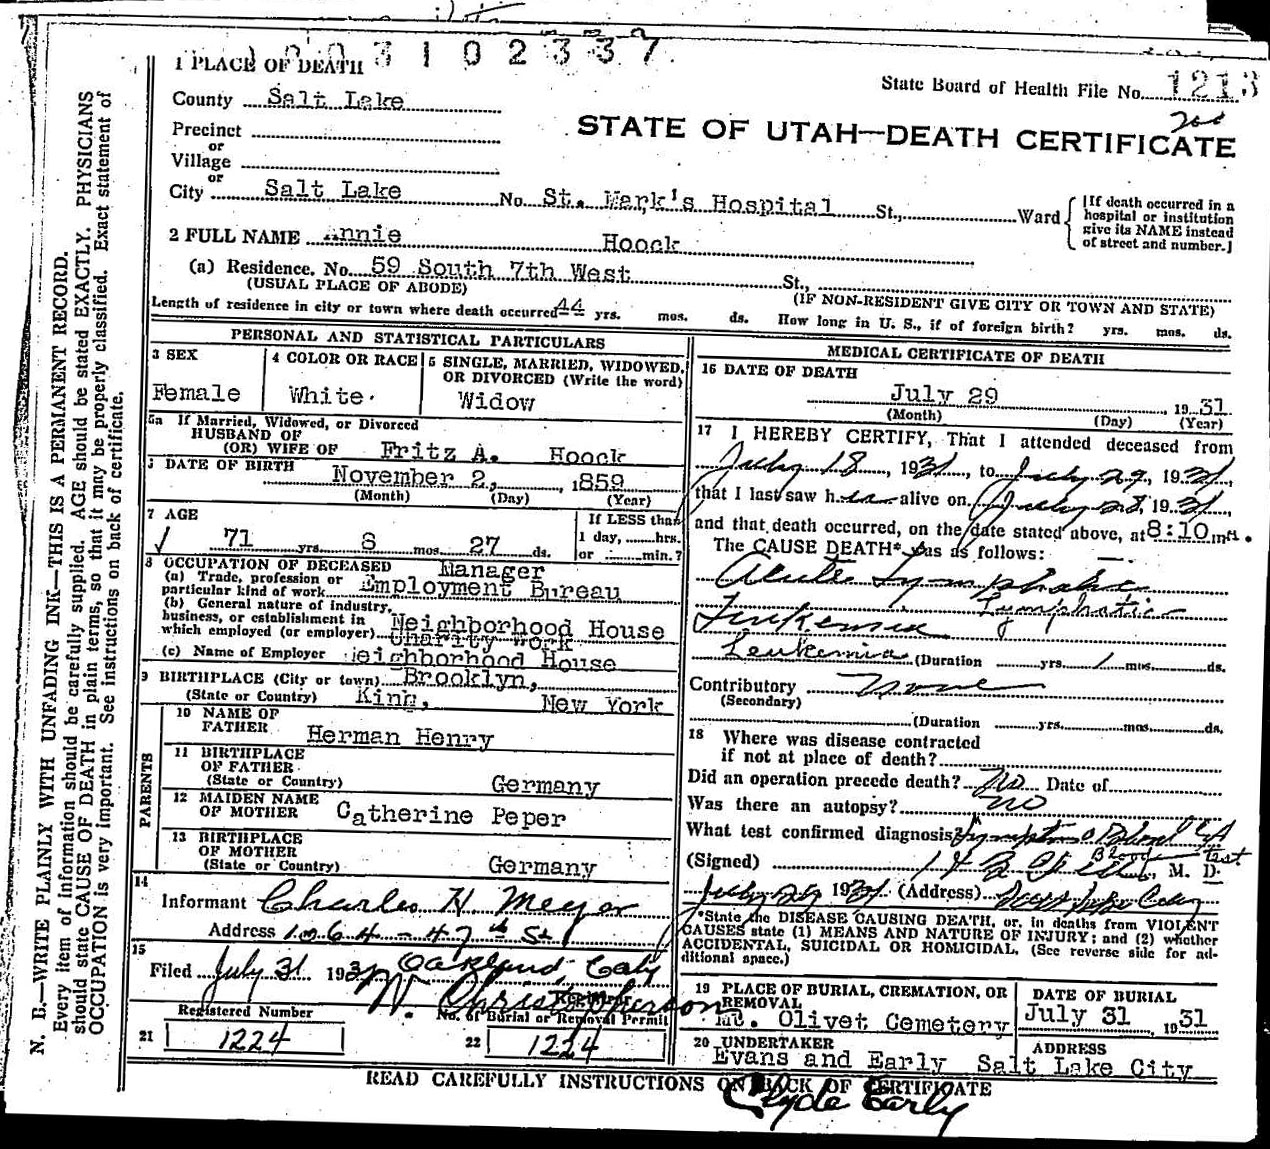 3 1 0 2 3 3 7
1 PLACE OF DEATH
State Board of Health File No. 1213
200
County Salt Lake
STATE OF UTAH—DEATH CERTIFICATE
Precinct
or
Village
or
City Salt Lake No. St. Mark's Hospital St., Ward
[If death occurred in a hospital or institution give its NAME instead of street and number.]
2 FULL NAME Annie Hoock
(a) Residence. No. 59 South 7th West St.,
(USUAL PLACE OF ABODE) (IF NON-RESIDENT GIVE CITY OR TOWN AND STATE)
Length of residence in city or town where death occurred 44 yrs. mos. ds. How long in U. S., if of foreign birth? yrs. mos. ds.
PERSONAL AND STATISTICAL PARTICULARS
3 SEX
Female
4 COLOR OR RACE
White
5 SINGLE, MARRIED, WIDOWED, OR DIVORCED (Write the word)
Widow
5a If Married, Widowed, or Divorced
HUSBAND OF
(OR) WIFE OF Fritz A. Hoock
DATE OF BIRTH
November 2, 1859
(Month) (Day) (Year)
7 AGE
71 yrs. 8 mos. 27 ds.
If LESS than
1 day, hrs.
or min.?
8 OCCUPATION OF DECEASED
(a) Trade, profession or particular kind of work Manager Employment Bureau
(b) General nature of industry, business, or establishment in which employed (or employer) Neighborhood House
Charity Work
(c) Name of Employer Neighborhood House
9 BIRTHPLACE (City or town) Brooklyn,
(State or Country) King, New York
PARENTS
10 NAME OF FATHER Herman Henry
11 BIRTHPLACE OF FATHER
(State or Country) Germany
12 MAIDEN NAME OF MOTHER Catherine Peper
13 BIRTHPLACE OF MOTHER
(State or Country) Germany
14
Informant Charles H. Meyer
Address 1064 - 47th St
Oakland, Caly
15
Filed July 31 1931 W. Christopherson
Registrar
Registered Number
21 1224
No. of Burial or Removal Permit
22 1224
MEDICAL CERTIFICATE OF DEATH
16 DATE OF DEATH
July 29, 1931
(Month) (Day) (Year)
17 I HEREBY CERTIFY, That I attended deceased from
July 18, 1931, to July 29, 1931,
that I last saw her alive on July 28, 1931,
and that death occurred, on the date stated above, at 8:10 m.
The CAUSE DEATH* was as follows:
Acute Lymphatic
Lymphatic
Leukemia
Leukemia (Duration yrs. 1 mos. ds.
Contributory None
(Secondary)
(Duration yrs. mos. ds.
18 Where was disease contracted
if not at place of death?
Did an operation precede death? No Date of
Was there an autopsy? no
What test confirmed diagnosis? Symptoms Blood
Blood Test
(Signed) M. D.
July 29 1931 (Address) Salt Lake City
*State the DISEASE CAUSING DEATH, or, in deaths from VIOLENT
CAUSES state (1) MEANS AND NATURE OF INJURY; and (2) whether
ACCIDENTAL, SUICIDAL OR HOMICIDAL. (See reverse side for ad-
ditional space.)
19 PLACE OF BURIAL, CREMATION, OR REMOVAL
Mt. Olivet Cemetery
DATE OF BURIAL
July 31 1931
20 UNDERTAKER
Evans and Early
ADDRESS
Salt Lake City
READ CAREFULLY INSTRUCTIONS ON BACK OF CERTIFICATE
Clyde Early
N. B.—WRITE PLAINLY WITH UNFADING INK—THIS IS A PERMANENT RECORD.
Every item of information should be carefully supplied. AGE should be stated EXACTLY. PHYSICIANS
should state CAUSE OF DEATH in plain terms, so that it may be properly classified. Exact statement of
OCCUPATION is very important. See instructions on back of certificate.